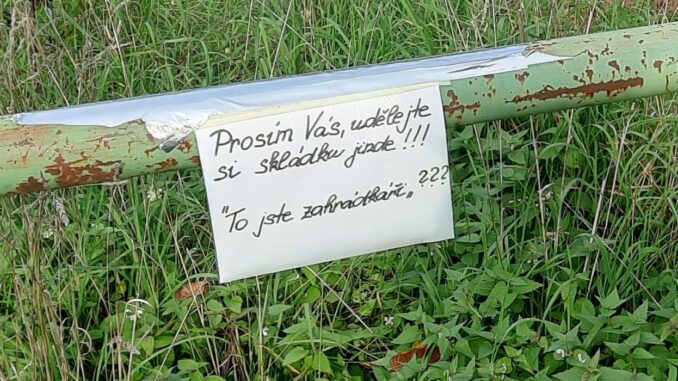 Prosím Vás, udělejte
si skládku jinde!!!
"To jste zahrádkáři" ???